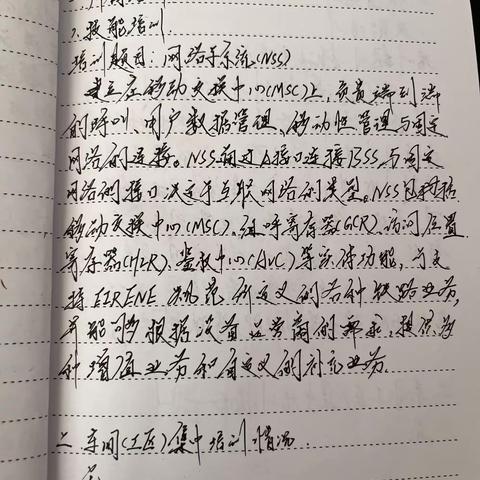 2.技能培训.
培训题目:网络子系统(NSS)
建立在移动交换中心(MSC)上,负责端到端
的呼叫、用户数据管理、移动性管理与固定
网络的连接。NSS通过A接口连接BSS,与固定
网络的接口决定于互联网络的类型。NSS包括
移动交换中心(MSC)、组呼寄存器(GCR)、访问位置
寄存器(HLR)、鉴权中心(AUC)等实体功能,
持EIRENE规范所定义的各种铁路业务,
并能够根据设备运营商的需求,提供各
种增值业务和自定义的补充业务.
二.车间(工区)集中培训情况.